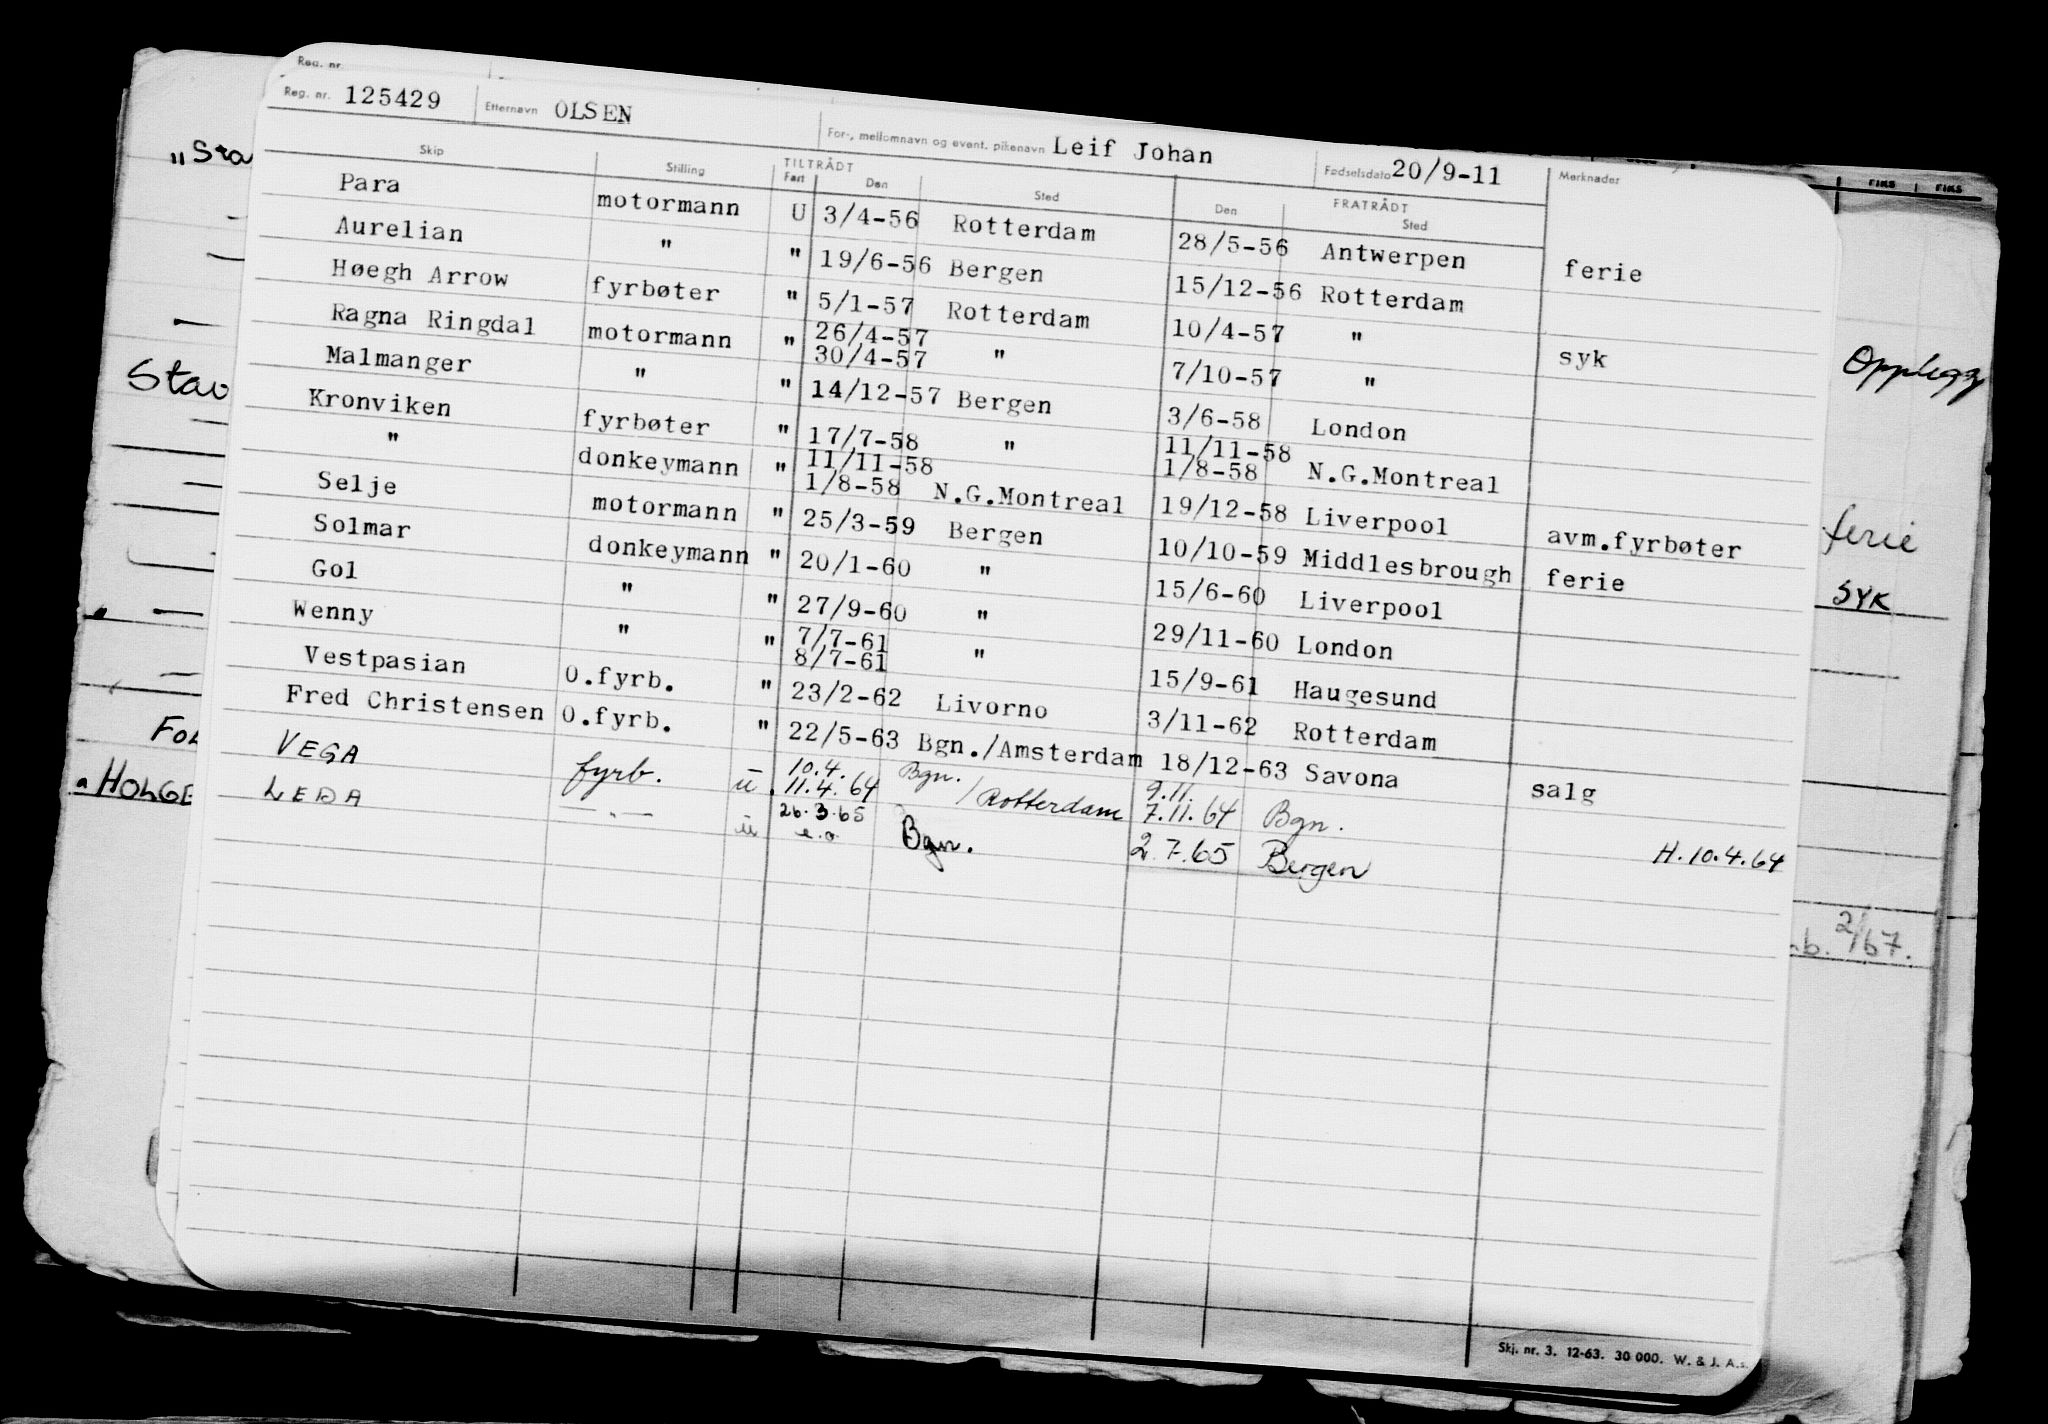 Reg. nr.
Reg. nr. 125429 Etternavn OLSEN For-, mellomnavn og event. pikenavn Leif Johan Fødselsdato 20/9-11 Merknader
Skip Stilling TILTRÅDT FRATRÅDT
Fart Den Sted Den Sted
Para motormann U 3/4-56 Rotterdam 28/5-56 Antwerpen ferie
Aurelian " " 19/6-56 Bergen 15/12-56 Rotterdam
Høegh Arrow fyrbøter " 5/1-57 Rotterdam 10/4-57 " syk
Ragna Ringdal motormann " 26/4-57 30/4-57 " 7/10-57 "
Malmanger " " 14/12-57 Bergen 3/6-58 London
Kronviken fyrbøter " 17/7-58 " 11/11-58 1/8-58 N.G.Montreal
" donkeymann " 11/11-58 1/8-58 N.G.Montreal 19/12-58 Liverpool avm.fyrbøter
Selje motormann " 25/3-59 Bergen 10/10-59 Middlesbrough ferie
Solmar donkeymann " 20/1-60 " 15/6-60 Liverpool
Gol " " 27/9-60 " 29/11-60 London
Wenny " " 7/7-61 8/7-61 " 15/9-61 Haugesund
Vestpasian O.fyrb. " 23/2-62 Livorno 3/11-62 Rotterdam
Fred Christensen O.fyrb. " 22/5-63 Bgn./Amsterdam 18/12-63 Savona salg
VEGA fyrb. u 10.4. 11.4.64 Bgn. / Rotterdam 9.11. 7.11.64 Bgn. H. 10.4.64
LEDA —"— u 26.3.65 e.o. Bgn. 2.7.65 Bergen
Skj. nr. 3. 12-63. 30 000. W. & J. A.s.
"Sta
Stav
FOL
HOLGE
FIKS FIKS
Opplegg
ferie
SYK
2/67.